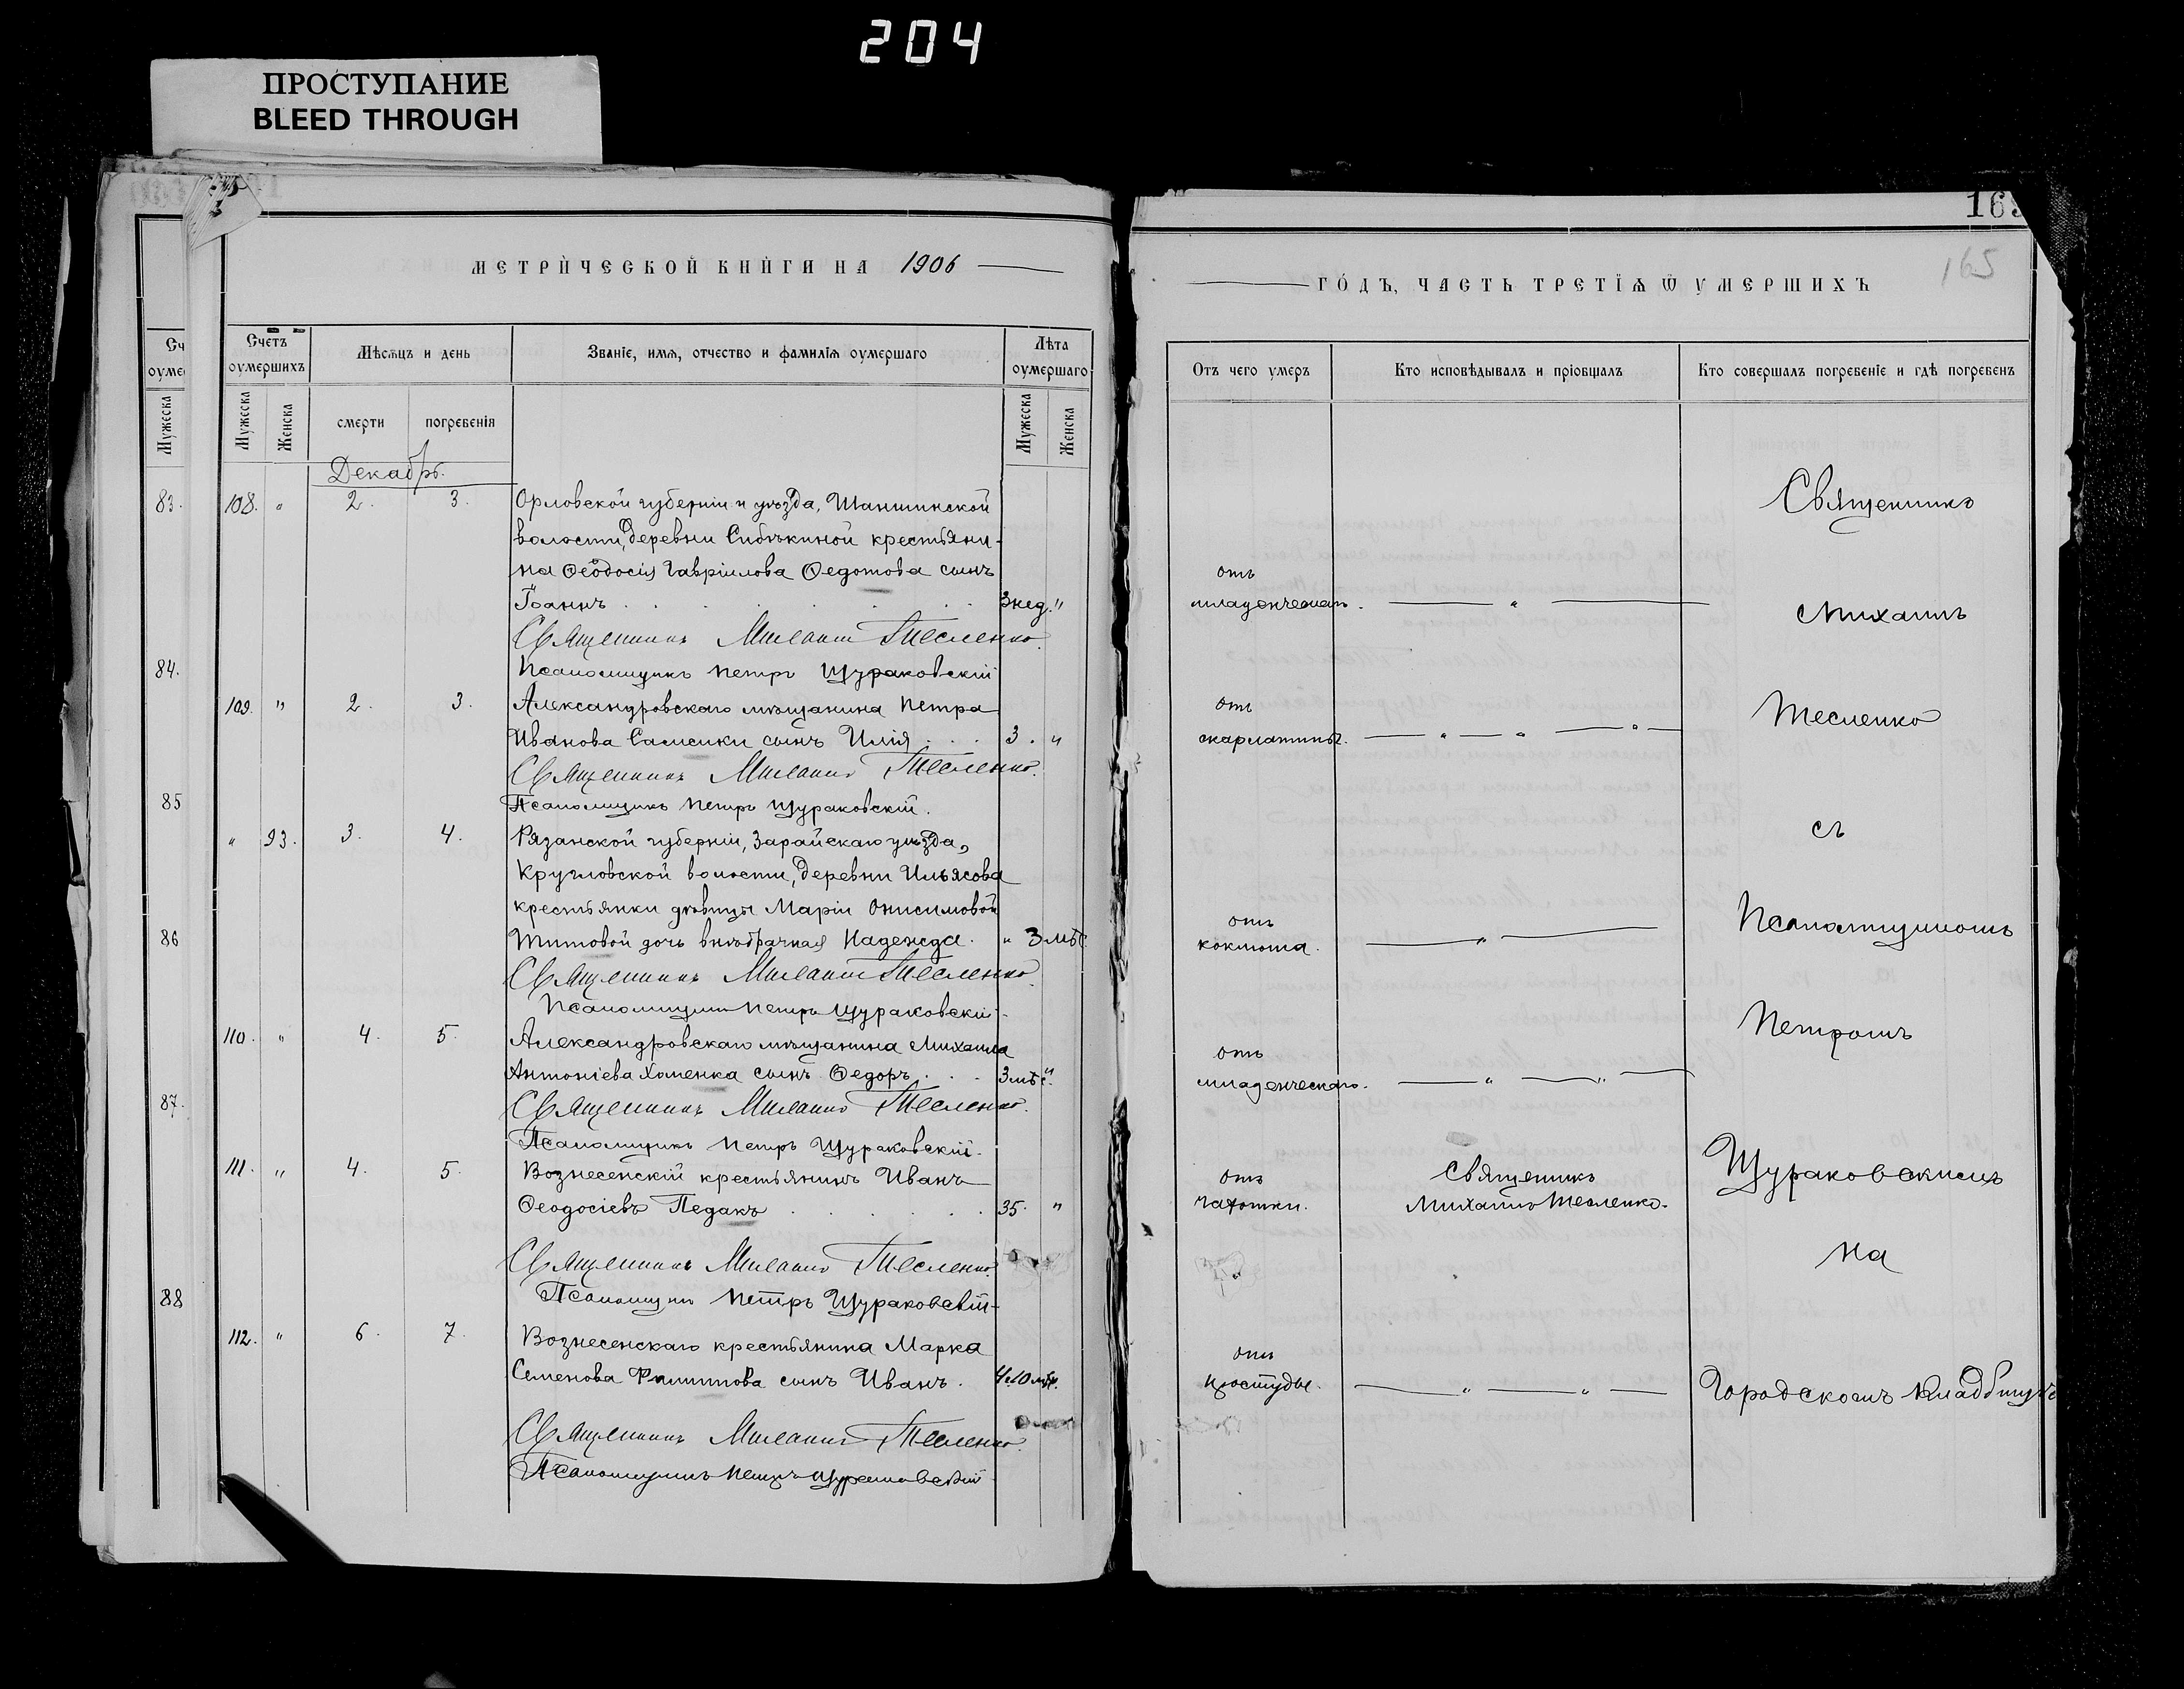 204
ПРОСТУПАНИЕ
BLEED THROUGH
МЕТРИЧЕСКОЙ КНИГИ НА 1906
Счетъ оумершихъ
Мѣсѧцъ и день
Званіе, имѧ, отчество и фамиліѧ оумершаго
Лѣта оумершаго
Мужеска
Женска
смерти
погребеніѧ
Мужеска
Женска
Декабрь.
83.
108. " 2. 3. Орловской губерніи и уѣзда, Шаншинской
волости, деревни крестьяни-
на Ѳеодосія Гавріилова Ѳедотова сынъ
Іоаннъ . . . . . . . 3 нед. "
Священникъ Михаилъ Тесленко.
84.
Псаломщикъ Петръ Щураковскій
109. " 2. 3. Александровскаго мѣщанина Петра
Иванова сынъ Илія . . . 3. "
Священникъ Михаилъ Тесленко.
85
Псаломщикъ Петръ Щураковскій.
" 93. 3. 4. Рязанской губерніи, Зарайскаго уѣзда,
Кругловской волости, деревни Ильясова
крестьянки дѣвицы Маріи Онисимовой
86
Титовой дочь внѣбрачная Надежда. " 3 мѣс.
Священникъ Михаилъ Тесленко.
Псаломщикъ Петръ Щураковскій.
110. " 4. 5. Александровскаго мѣщанина Михаила
Антоніева Хоменка сынъ Ѳедоръ . . . 3 мѣс. "
87.
Священникъ Михаилъ Тесленко.
Псаломщикъ Петръ Щураковскій.
111. " 4. 5. Вознесенскій крестьянинъ Иванъ
Ѳеодосіевъ Педакъ . . . . . . 35. "
Священникъ Михаилъ Тесленко.
88
Псаломщикъ Петръ Щураковскій.
112. " 6. 7. Вознесенскаго крестьянина Марка
Семенова Филиппова сынъ Иванъ.
Священникъ Михаилъ Тесленко.
Псаломщикъ Петръ Щураковскій
165
ГОДЪ, ЧАСТЬ ТРЕТІѦ Ѿ УМЕРШИХЪ
Отъ чего умеръ
Кто исповѣдывалъ и пріобщалъ
Кто совершалъ погребеніе и гдѣ погребенъ
отъ
младенческаго.
отъ
скарлатины.
отъ
коклюша.
отъ
младенческаго.
отъ
чахотки.
Священникъ
Михаилъ Тесленко.
отъ
простуды.
Священникъ
Михаилъ
Тесленко
съ
Псаломщикомъ
Петромъ
Щураковскимъ
на
Городскомъ кладбищѣ